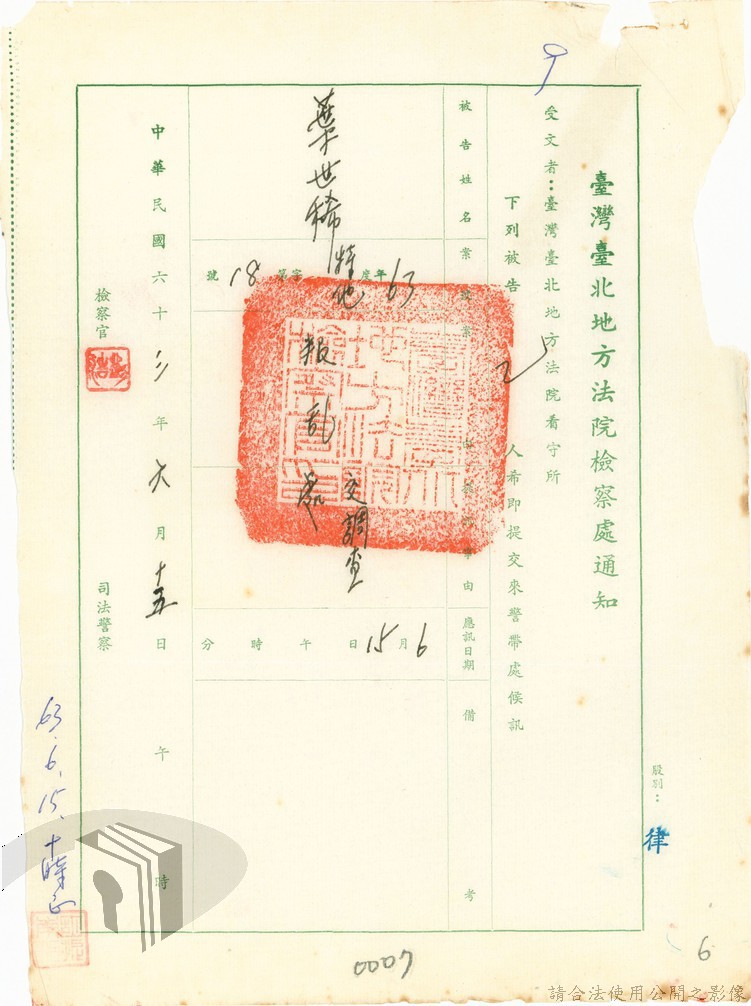 臺灣臺北地方法院檢察處通知
股別：律
受文者：臺灣臺北地方法院看守所
下列被告 乙 人希即提交來警帶處候訊
被告姓名 葉世稀
63年度特他字第18號
案由 叛亂
交調查處
應訊日期 6月15日 午 時 分
備考
中華民國六十三年六月十五日 午 時
檢察官
司法警察
63.6.15.十時正
0007
6
請合法使用公開之影像